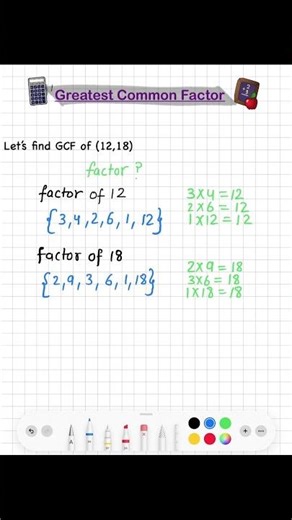 Greatest Common Factor
Let's find GCF of (12,18)
factor ?
factor of 12
{3,4,2,6,1,12}
3 X 4 = 12
2 X 6 = 12
1 X 12 = 12
factor of 18
{2,9,3,6,1,18}
2 X 9 = 18
3 X 6 = 18
1 X 18 = 18